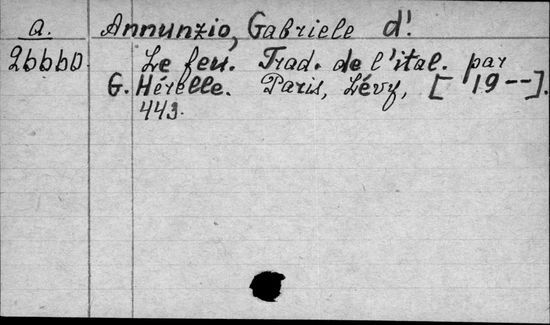 a. Annunzio, Gabriele d'.
26660. Le feu. Trad. de l'ital. par
G. Hérelle. Paris, Lévy, [19--].
443.